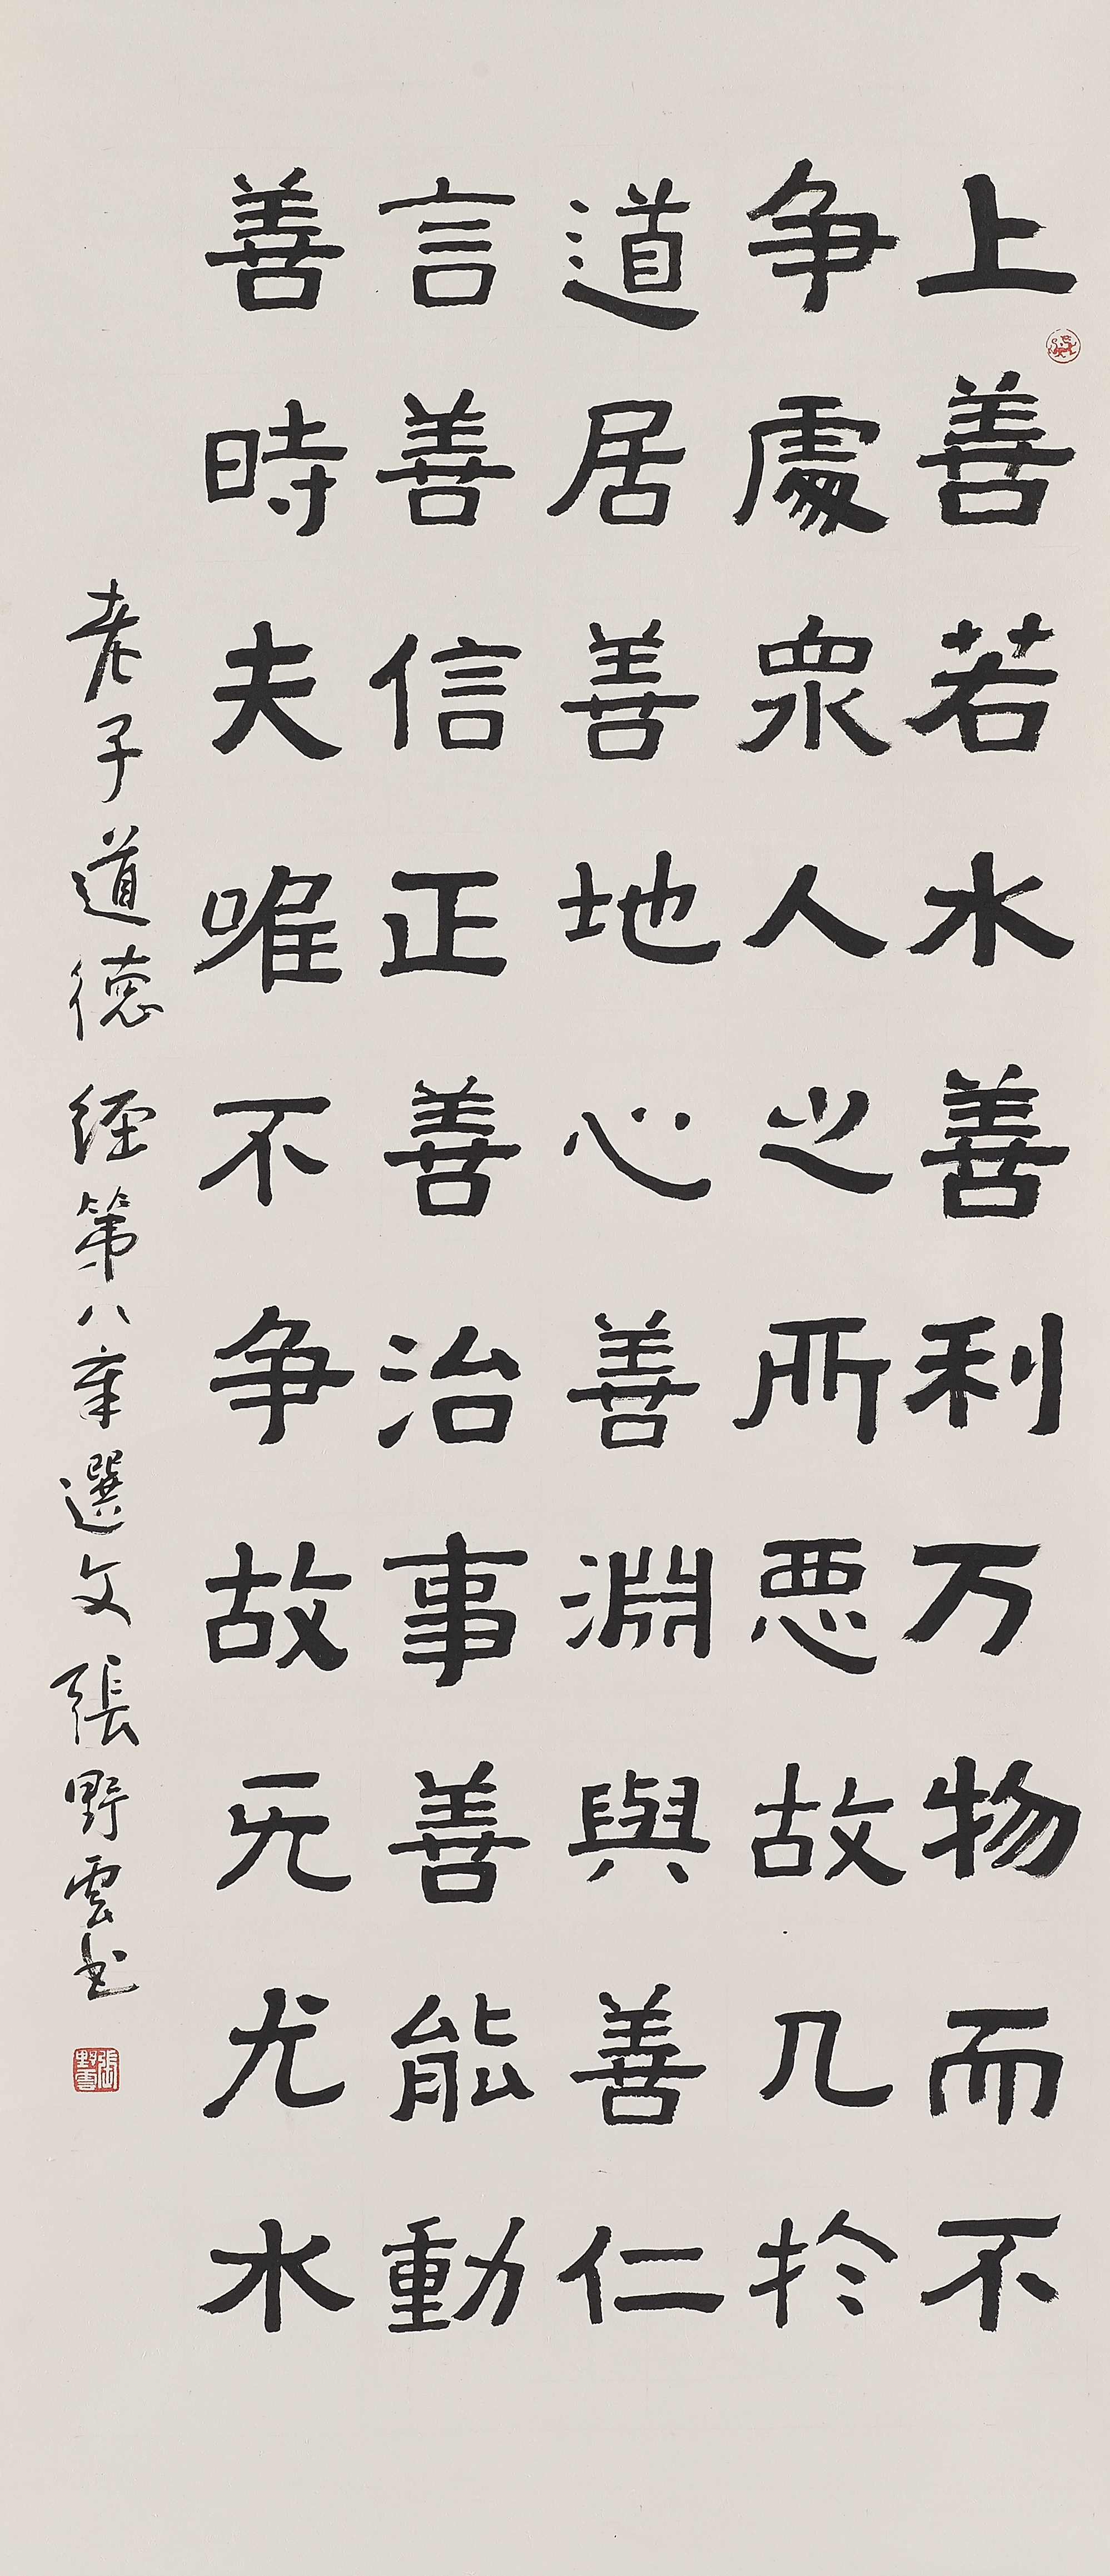 上善若水善利万物而不
争處衆人之所惡故几於
道居善地心善淵與善仁
言善信正善治事善能動
善時夫唯不争故无尤水
老子道德經第八章選文張野雲书
張野雲